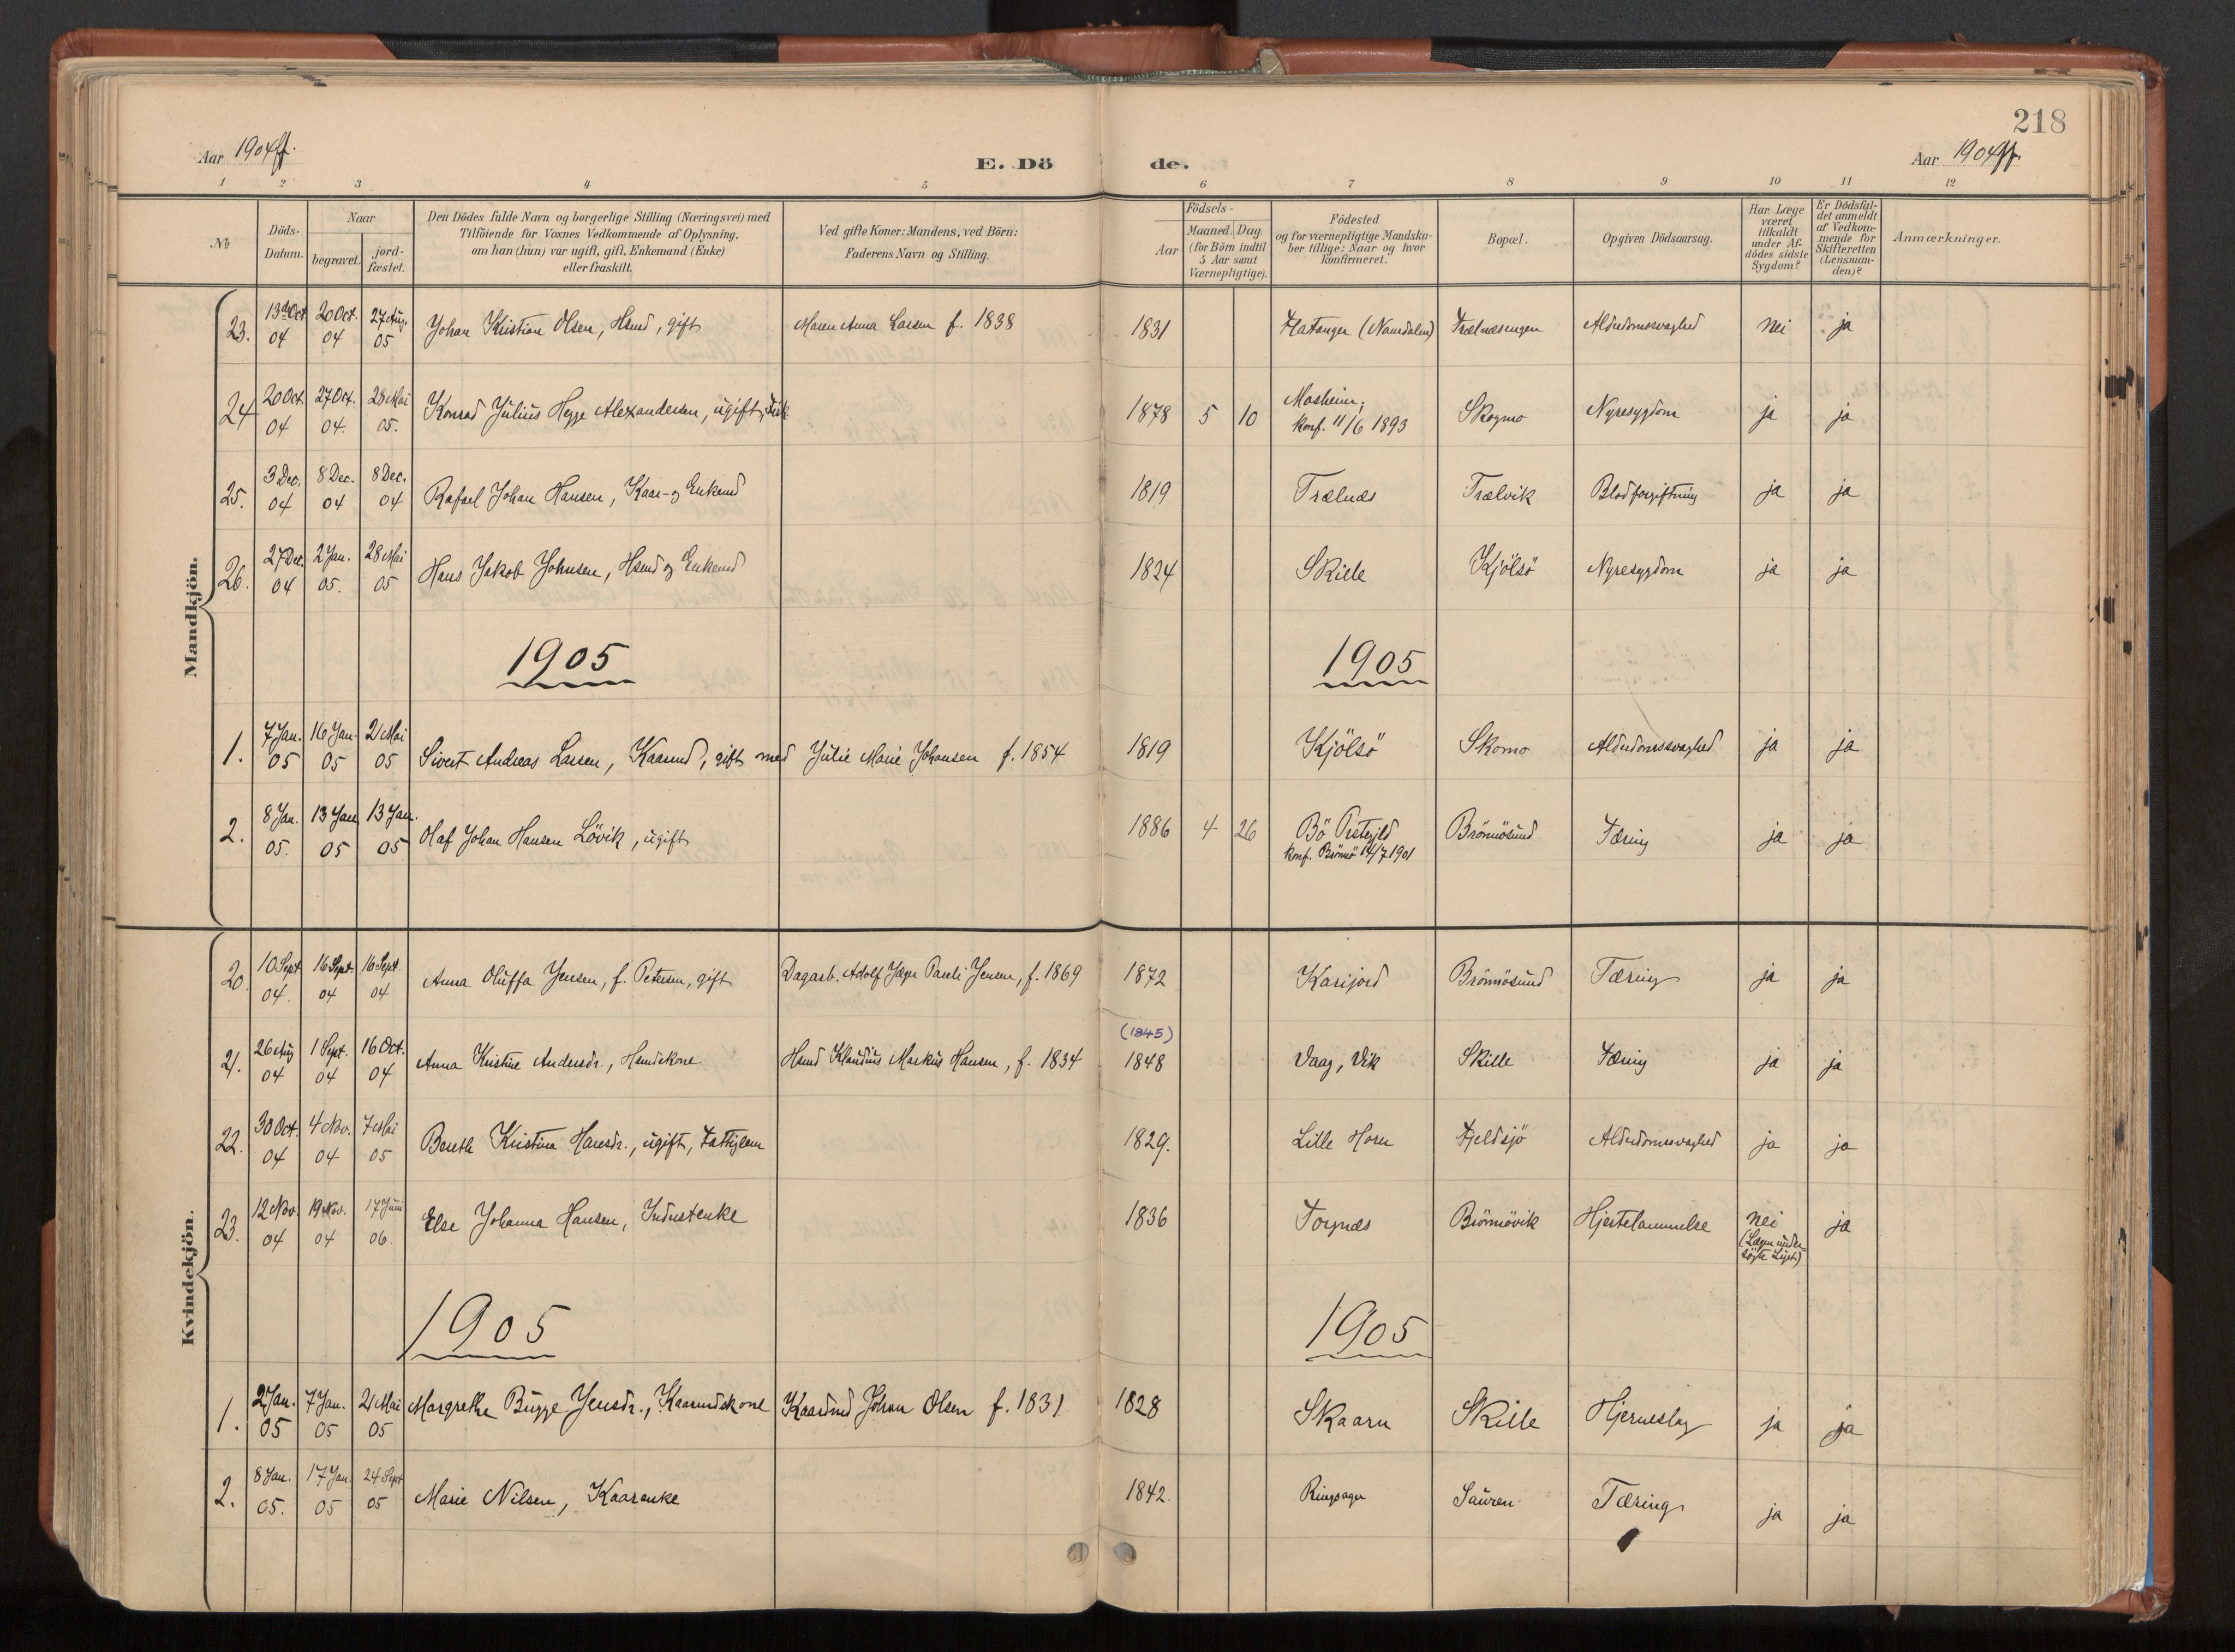 218
Aar 1904ff.
E. Dö de.
Aar 1904ff.
1 2 3 4 5 6 7 8 9 10 11 12
No
Döds-Datum.
Naar
begravet.
jord-fæstet.
Den Dödes fulde Navn og borgerlige Stilling (Næringsvei) med
Tilföiende for Voxnes Vedkommende af Oplysning,
om han (hun) var ugift, gift, Enkemand (Enke)
eller fraskilt.
Ved gifte Koner: Mandens, ved Börn:
Faderens Navn og Stilling.
Födsels-
Aar
Maaned. Dag.
(for Börn indtil
5 Aar samt
Værnepligtige).
Födested
og for værnepligtige Mandska-
ber tillige: Naar og hvor
konfirmeret.
Bopæl.
Opgiven Dödsaarsag.
Har Læge
været
tilkaldt
under Af-
dödes sidste
Sygdom?
Er Dödsfal-
det anmeldt
af Vedkom-
mende for
Skifteretten
(Lensman-
den)?
Anmærkninger.
Mandkjön.
23. 13de Oct. 04 20 Oct. 04 27 Aug. 05 Johan Kristian Olsen, Hsmd, gift Maren Anna Larsen f. 1838 1831 Flatanger (Namdalen) Trælnæsengen Alderdomssvaghed nei ja
24 20 Oct. 04 27 Oct. 04. 28 Mai 05. Konrad Julius Hegge Alexandersen, ugift, Fisk. 1878 5 10 Mosheim; konf. 11/6 1893 Skogmo Nyresygdom ja ja
25. 3 Dec. 04 8 Dec. 04 8 Dec. 04 Rafael Johan Hansen, Kaar- og Enkemd 1819 Trælnæs Trælvik Blodforgiftning ja ja
26. 27 Dec. 04 2 Jan. 05. 28 Mai 05 Hans Jakob Johnsen, Hsmd og Enkemd 1824 Skille Kjölsö Nyresygdom ja ja
1905 1905
1. 7 Jan. 05 16 Jan. 05 21 Mai 05 Sivert Andreas Larsen, Kaarmd, gift med Julie Marie Johansen f. 1854 1819 Kjölsö Skomo Alderdomssvaghed ja ja
2. 8 Jan. 05. 13 Jan 05 13 Jan. 05 Olaf Johan Hansen Lövik, ugift 1886 4 26 Bö Prstgjld konf. Brönnö 14/7 1901 Brönnösund Tæring ja ja
Kvindekjön.
20. 10 Sept 04. 16 Sept. 04 16 Sept. 04 Anna Oluffa Jensen, f. Petersen, gift Dagarb. Adolf Jæger Pareli Jensen, f. 1869 1872 Karijord Brönnösund Tæring ja ja
(1845)
21. 26 Aug 04 1 Sept. 04 16 Oct. 04 Anna Kristine Andersdr., Hsmdskone Hsmd Klaudius Markus Hansen, f. 1834 1848 Vaag, Vik Skille Tæring ja ja
22. 30 Oct. 04 4 Nov. 04 7 Mai 05 Bereth Kristina Hansdr., ugift, Fattiglem 1829. Lille Horn Fjeldsjö Alderdomssvaghed ja ja
23. 12 Nov. 04 19 Nov. 04 17 Juni 06. Else Johanna Hansen, Inderstenke 1836 Torgnæs Brönnövik Hjertelammelse nei (Lægen under-
sögte Liget) ja
1905 1905
1. 2 Jan. 05 7 Jan. 05 21 Mai 05 Margrethe Bugge Jensdr., Kaarmdskone Kaardmd Johan Olsen f. 1831 1828 Skaarn Skille Hjerneslag ja ja
2. 8 Jan. 05. 17 Jan. 05 24 Sept 05 Marie Nilsen, Kaarenke 1842. Ringsager Sauren Tæring ja ja